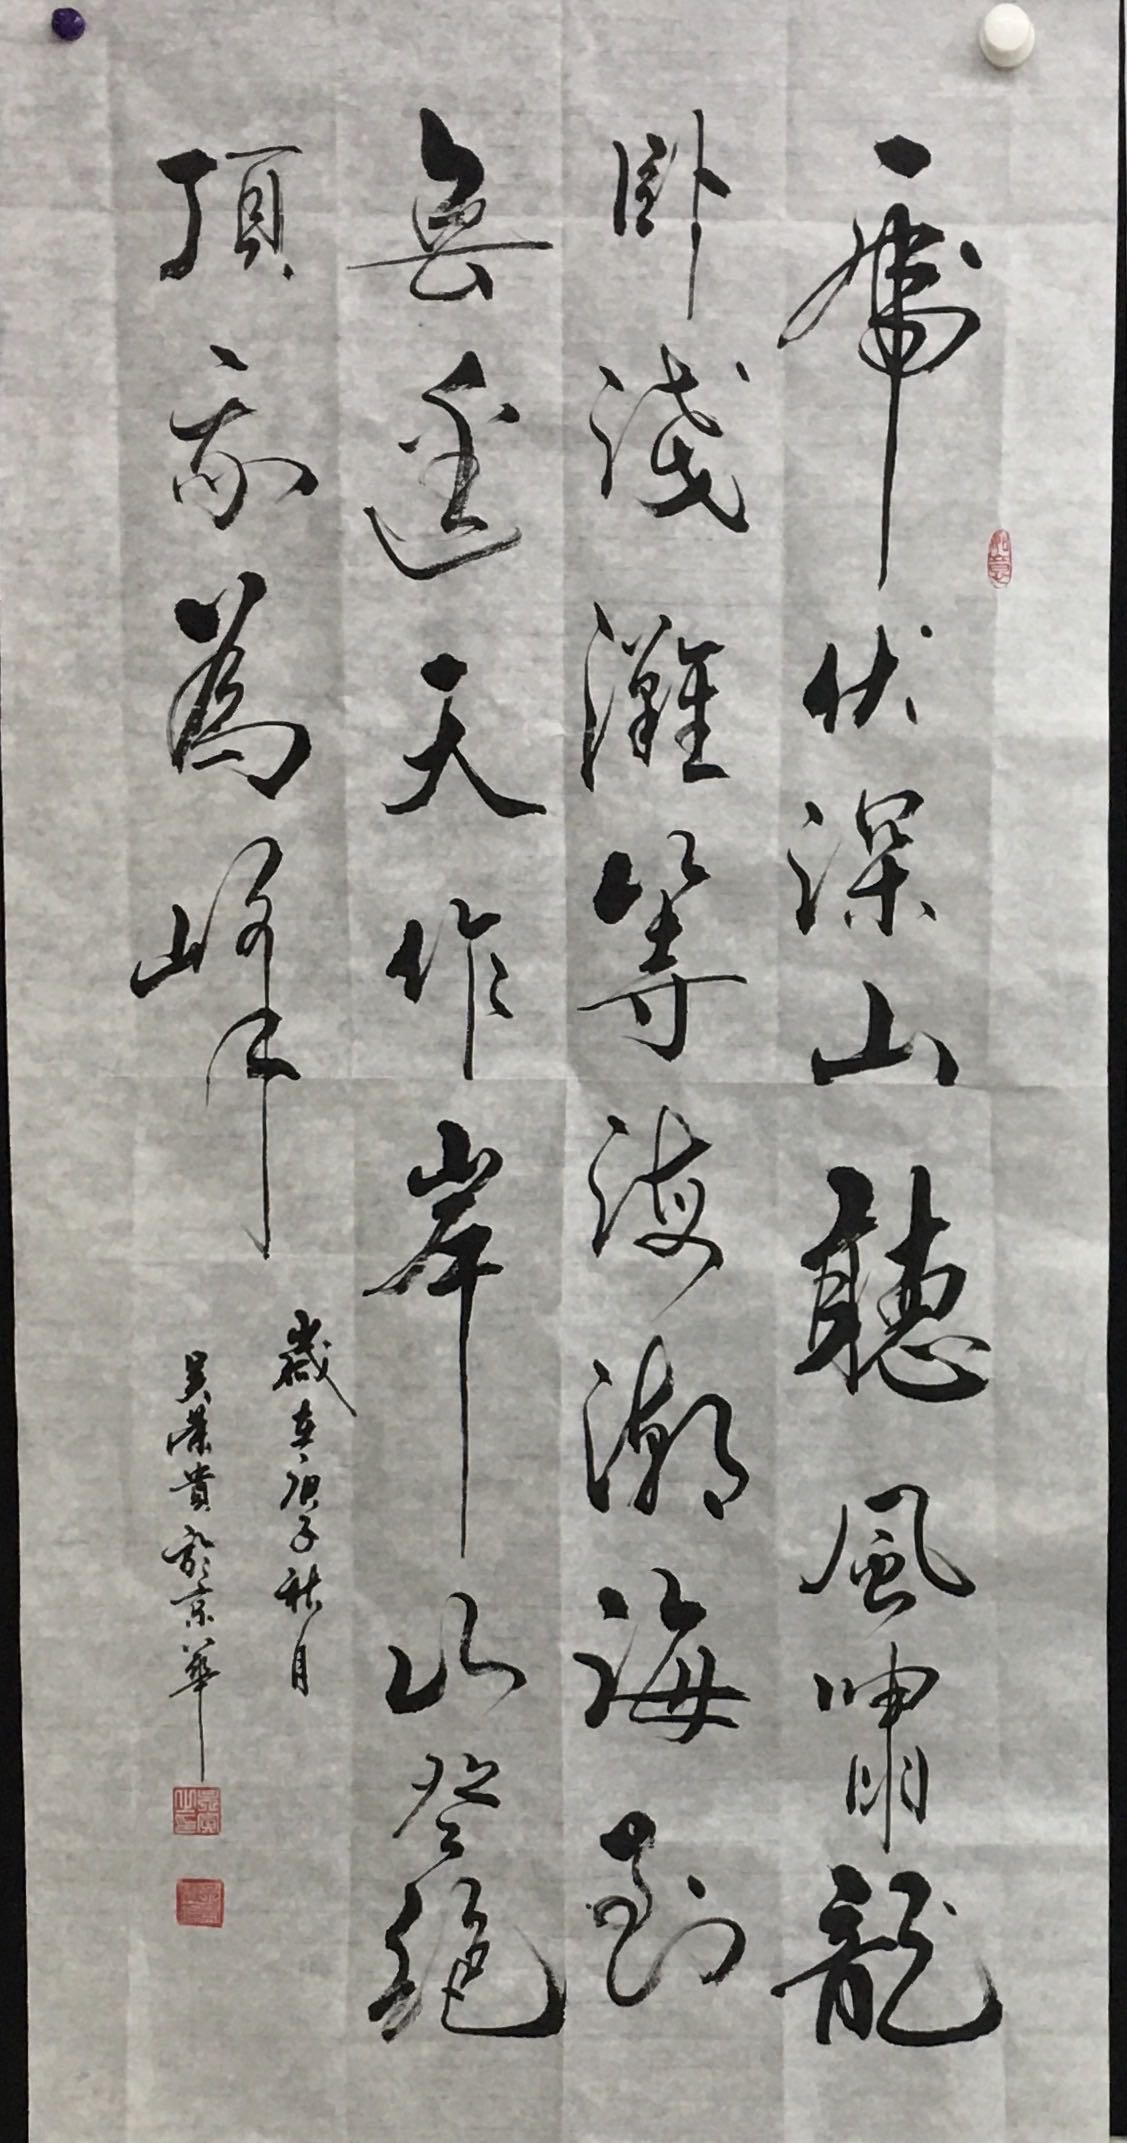 虎伏深山聽風嘯龍
卧淺灘等海潮海到
無邊天作岸山登絕
頂我為峰
歲在庚子秋月
吳榮貴於京華